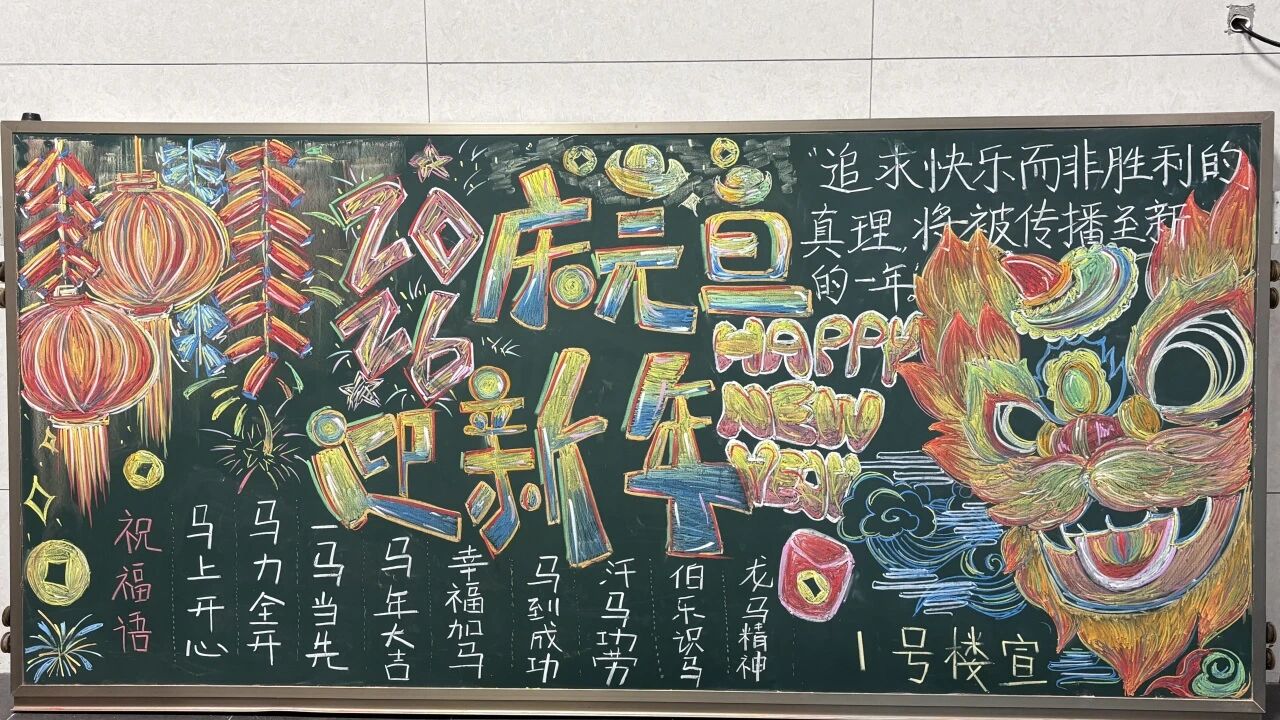 2026
庆元旦
迎新年
HAPPY
NEW
YEAR
“追求快乐而非胜利的
真理,将被传播至新
的一年。
祝福语
马上开心
马力全开
一马当先
马年大吉
幸福加马
马到成功
汗马功劳
伯乐识马
龙马精神
1号楼宣